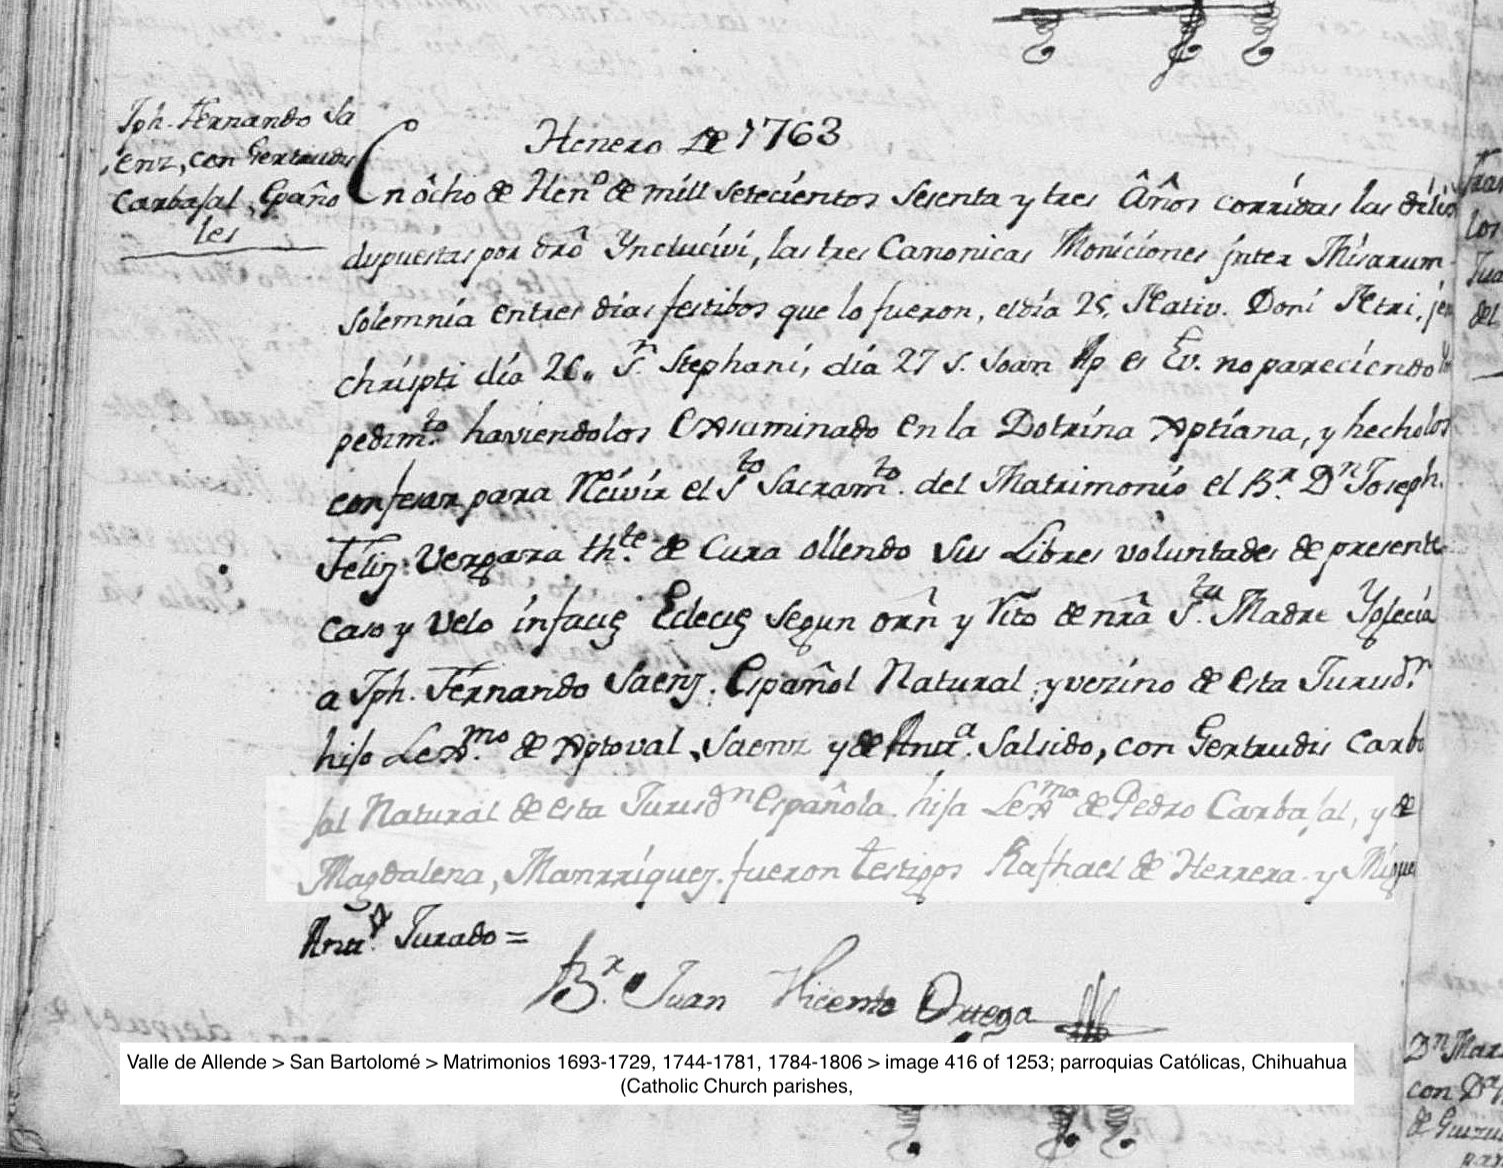 Jph. Fernando Sa
enz, con Gertrudis
Carbasal, Españo
les
Henero de 1763
En ôcho de Henº de mill setecientos sesenta y tres Âños corridas las dilig
dispuestas por drô Ynclucivi, las tres Canonicas Moniciones jnter Misarum
solemnia entres dias festibos que lo fueron, el dia 25, Nativ. Doni Ntri. jesu
chripti dia 26,, S.n Stephani, dia 27 S. Joan Ap es Ev. no pareciendo
pedim.to haviendolos Exsaminado en la Dotrina Xptiana, y hecholos
confesar para Receivir el S.to Sacram.to del Matrimonio el B.r D.n Joseph.
Feliz Vergara th.te de Cura ollendo sus Libres voluntades de presente
Caso y Velo infacie Eclecie segun orn̂ y Rito de nr̂a S.ta Madre Yglecia
a Jph. Fernando Saenz. Español Natural y vezino de esta Jurisd.n
hijo Lex.mo de Xptoval Saenz y de Antt.a Salsido, con Gertrudis Carba
sal Natural de esta Jurisd.n Española. hija Lex.ma de Pedro Carbasal, y de
Magdalena, Manrriquez. fueron testigos Raphael de Herrera y Miguel
Antt.º Jurado =
B.r Juan Vicente Ortega
Valle de Allende > San Bartolomé > Matrimonios 1693-1729, 1744-1781, 1784-1806 > image 416 of 1253; parroquias Católicas, Chihuahua
(Catholic Church parishes,
D.n Mar
con D.a
de Guizu